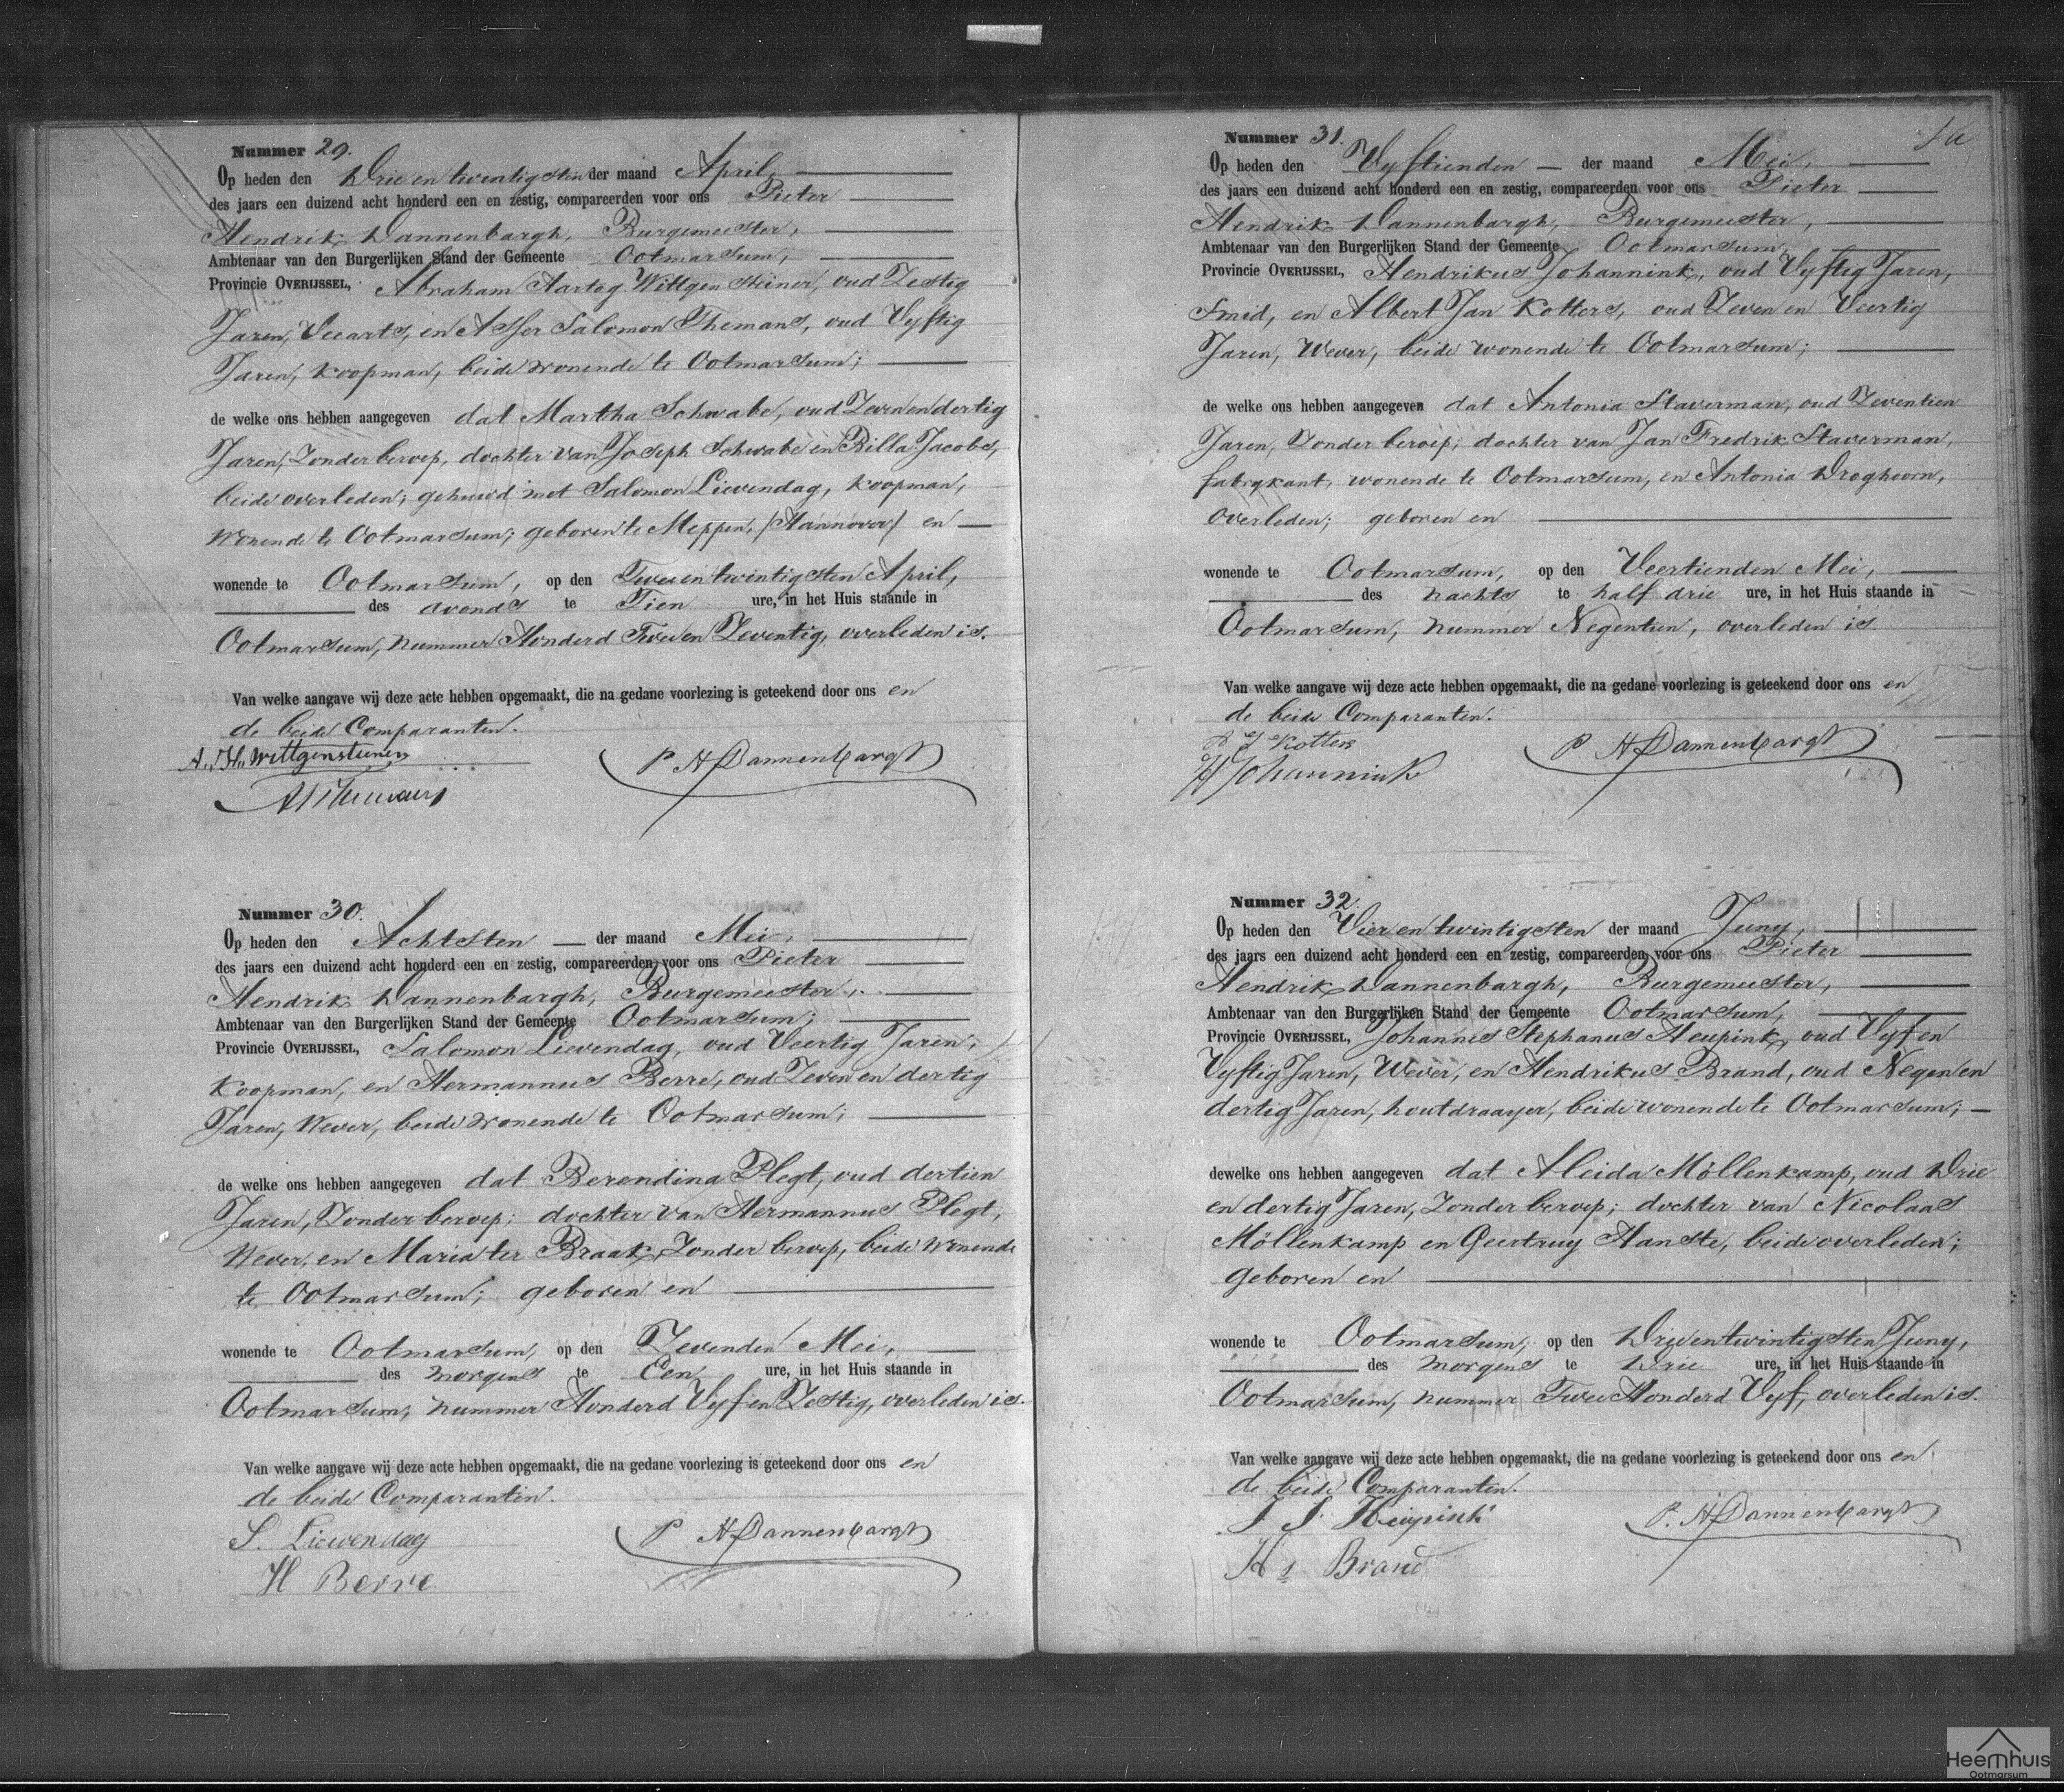 Nummer 29.
Op heden den Drie en twintigsten der maand April,
des jaars een duizend acht honderd een en zestig, compareerden voor ons Pieter
Hendrik Dannenbargh, Burgemeester,
Ambtenaar van den Burgerlijken Stand der Gemeente Ootmarsum,
Provincie OVERIJSSEL, Abraham Hartog Wittgensteiner, oud Zestig
Jaren, Veearts, en Asser Salomon Themans, oud Vyftig
Jaren, Koopman, beide wonende te Ootmarsum;
de welke ons hebben aangegeven dat Martha Schwabe, oud Zeven en dertig
Jaren, Zonder beroep, dochter van Joseph Schwabe en Billa Jacobs,
beide overleden; gehuwd met Salomon Lievendag, Koopman,
Wonende te Ootmarsum; geboren te Meppen, /Hannover/ en
wonende te Ootmarsum, op den Twee en twintigsten April,
des avonds te Tien ure, in het Huis staande in
Ootmarsum, nummer Honderd Twee en Zeventig, overleden is.
Van welke aangave wij deze acte hebben opgemaakt, die na gedane voorlezing is geteekend door ons en
de beide Comparanten.
A. H. Wittgensteiner
P H Dannenbargh
A S Themans
Nummer 30.
Op heden den Achtsten der maand Mei,
des jaars een duizend acht honderd een en zestig, compareerden voor ons Pieter
Hendrik Dannenbargh, Burgemeester,
Ambtenaar van den Burgerlijken Stand der Gemeente Ootmarsum;
Provincie OVERIJSSEL, Salomon Lievendag, oud Veertig Jaren,
Koopman, en Hermannus Berre, oud Zeven en dertig
Jaren, Wever, beide wonende te Ootmarsum;
de welke ons hebben aangegeven dat Berendina Plegt, oud dertien
Jaren, Zonder beroep; dochter van Hermannus Plegt,
Wever, en Maria ter Braak, Zonder beroep, beide Wonende
te Ootmarsum; geboren en
wonende te Ootmarsum, op den Zevenden Mei,
des morgens te Een ure, in het Huis staande in
Ootmarsum, nummer Honderd Vyf en Zestig, overleden is.
Van welke aangave wij deze acte hebben opgemaakt, die na gedane voorlezing is geteekend door ons en
de beide Comparanten.
S. Lievendag
P H Dannenbargh
H Berre
Nummer 31.
Op heden den Vyftienden der maand Mei,
des jaars een duizend acht honderd een en zestig, compareerden voor ons Pieter
Hendrik Dannenbargh, Burgemeester,
Ambtenaar van den Burgerlijken Stand der Gemeente Ootmarsum,
Provincie OVERIJSSEL, Hendrikus Johannink, oud Vyftig Jaren,
Smid, en Albert Jan Kotters, oud Zeven en Veertig
Jaren, Wever, beide wonende te Ootmarsum;
de welke ons hebben aangegeven dat Antonia Staverman, oud Zeventien
Jaren, Zonder beroep; dochter van Jan Fredrik Staverman,
fabrykant, wonende te Ootmarsum, en Antonia Droghoorn,
overleden; geboren en
wonende te Ootmarsum, op den Veertienden Mei,
des nachts te half drie ure, in het Huis staande in
Ootmarsum, nummer Negentien, overleden is.
Van welke aangave wij deze acte hebben opgemaakt, die na gedane voorlezing is geteekend door ons en
de beide Comparanten.
A J Kotters
P H Dannenbargh
H Johannink
Nummer 32.
Op heden den Vier en twintigsten der maand Juny,
des jaars een duizend acht honderd een en zestig, compareerden voor ons Pieter
Hendrik Dannenbargh, Burgemeester,
Ambtenaar van den Burgerlijken Stand der Gemeente Ootmarsum,
Provincie OVERIJSSEL, Johannes Stephanus Heupink, oud Vyf en
Vyftig Jaren, Wever, en Hendrikus Brand, oud Negen en
dertig Jaren, houtdraayer, beide wonende te Ootmarsum;
dewelke ons hebben aangegeven dat Aleida Möllenkamp, oud Drie
en dertig Jaren, Zonder beroep; dochter van Nicolaas
Möllenkamp en Geertruy Hanste, beide overleden;
geboren en
wonende te Ootmarsum, op den Drie en twintigsten Juny,
des morgens te Drie ure, in het Huis staande in
Ootmarsum, nummer Twee Honderd Vyf, overleden is.
Van welke aangave wij deze acte hebben opgemaakt, die na gedane voorlezing is geteekend door ons en
de beide Comparanten.
J S Heupink
P. H Dannenbargh
Hs Brand
Heemhuis
Ootmarsum